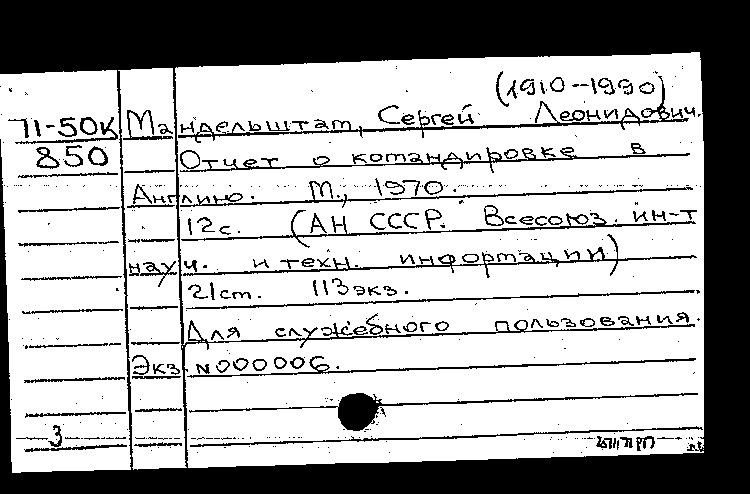 (1910-1990)
71-50к Мандельштам, Сергей Леонидович.
850 Отчет о командировке в
Англию. М., 1970.
12с. (АН СССР. Всесоюз. ин-т
науч. и техн. информации)
21ст. 113экз.
Для служебного пользования.
Экз. N000006.
3